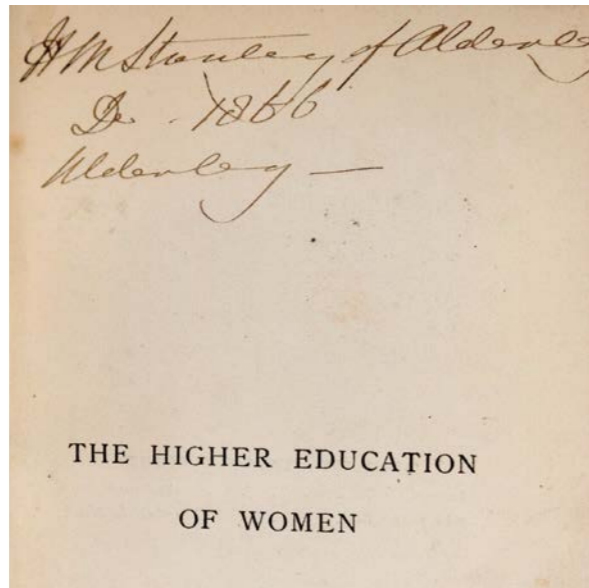 H M Stanley of Alderley
De . 1866
Alderley —
THE HIGHER EDUCATION
OF WOMEN